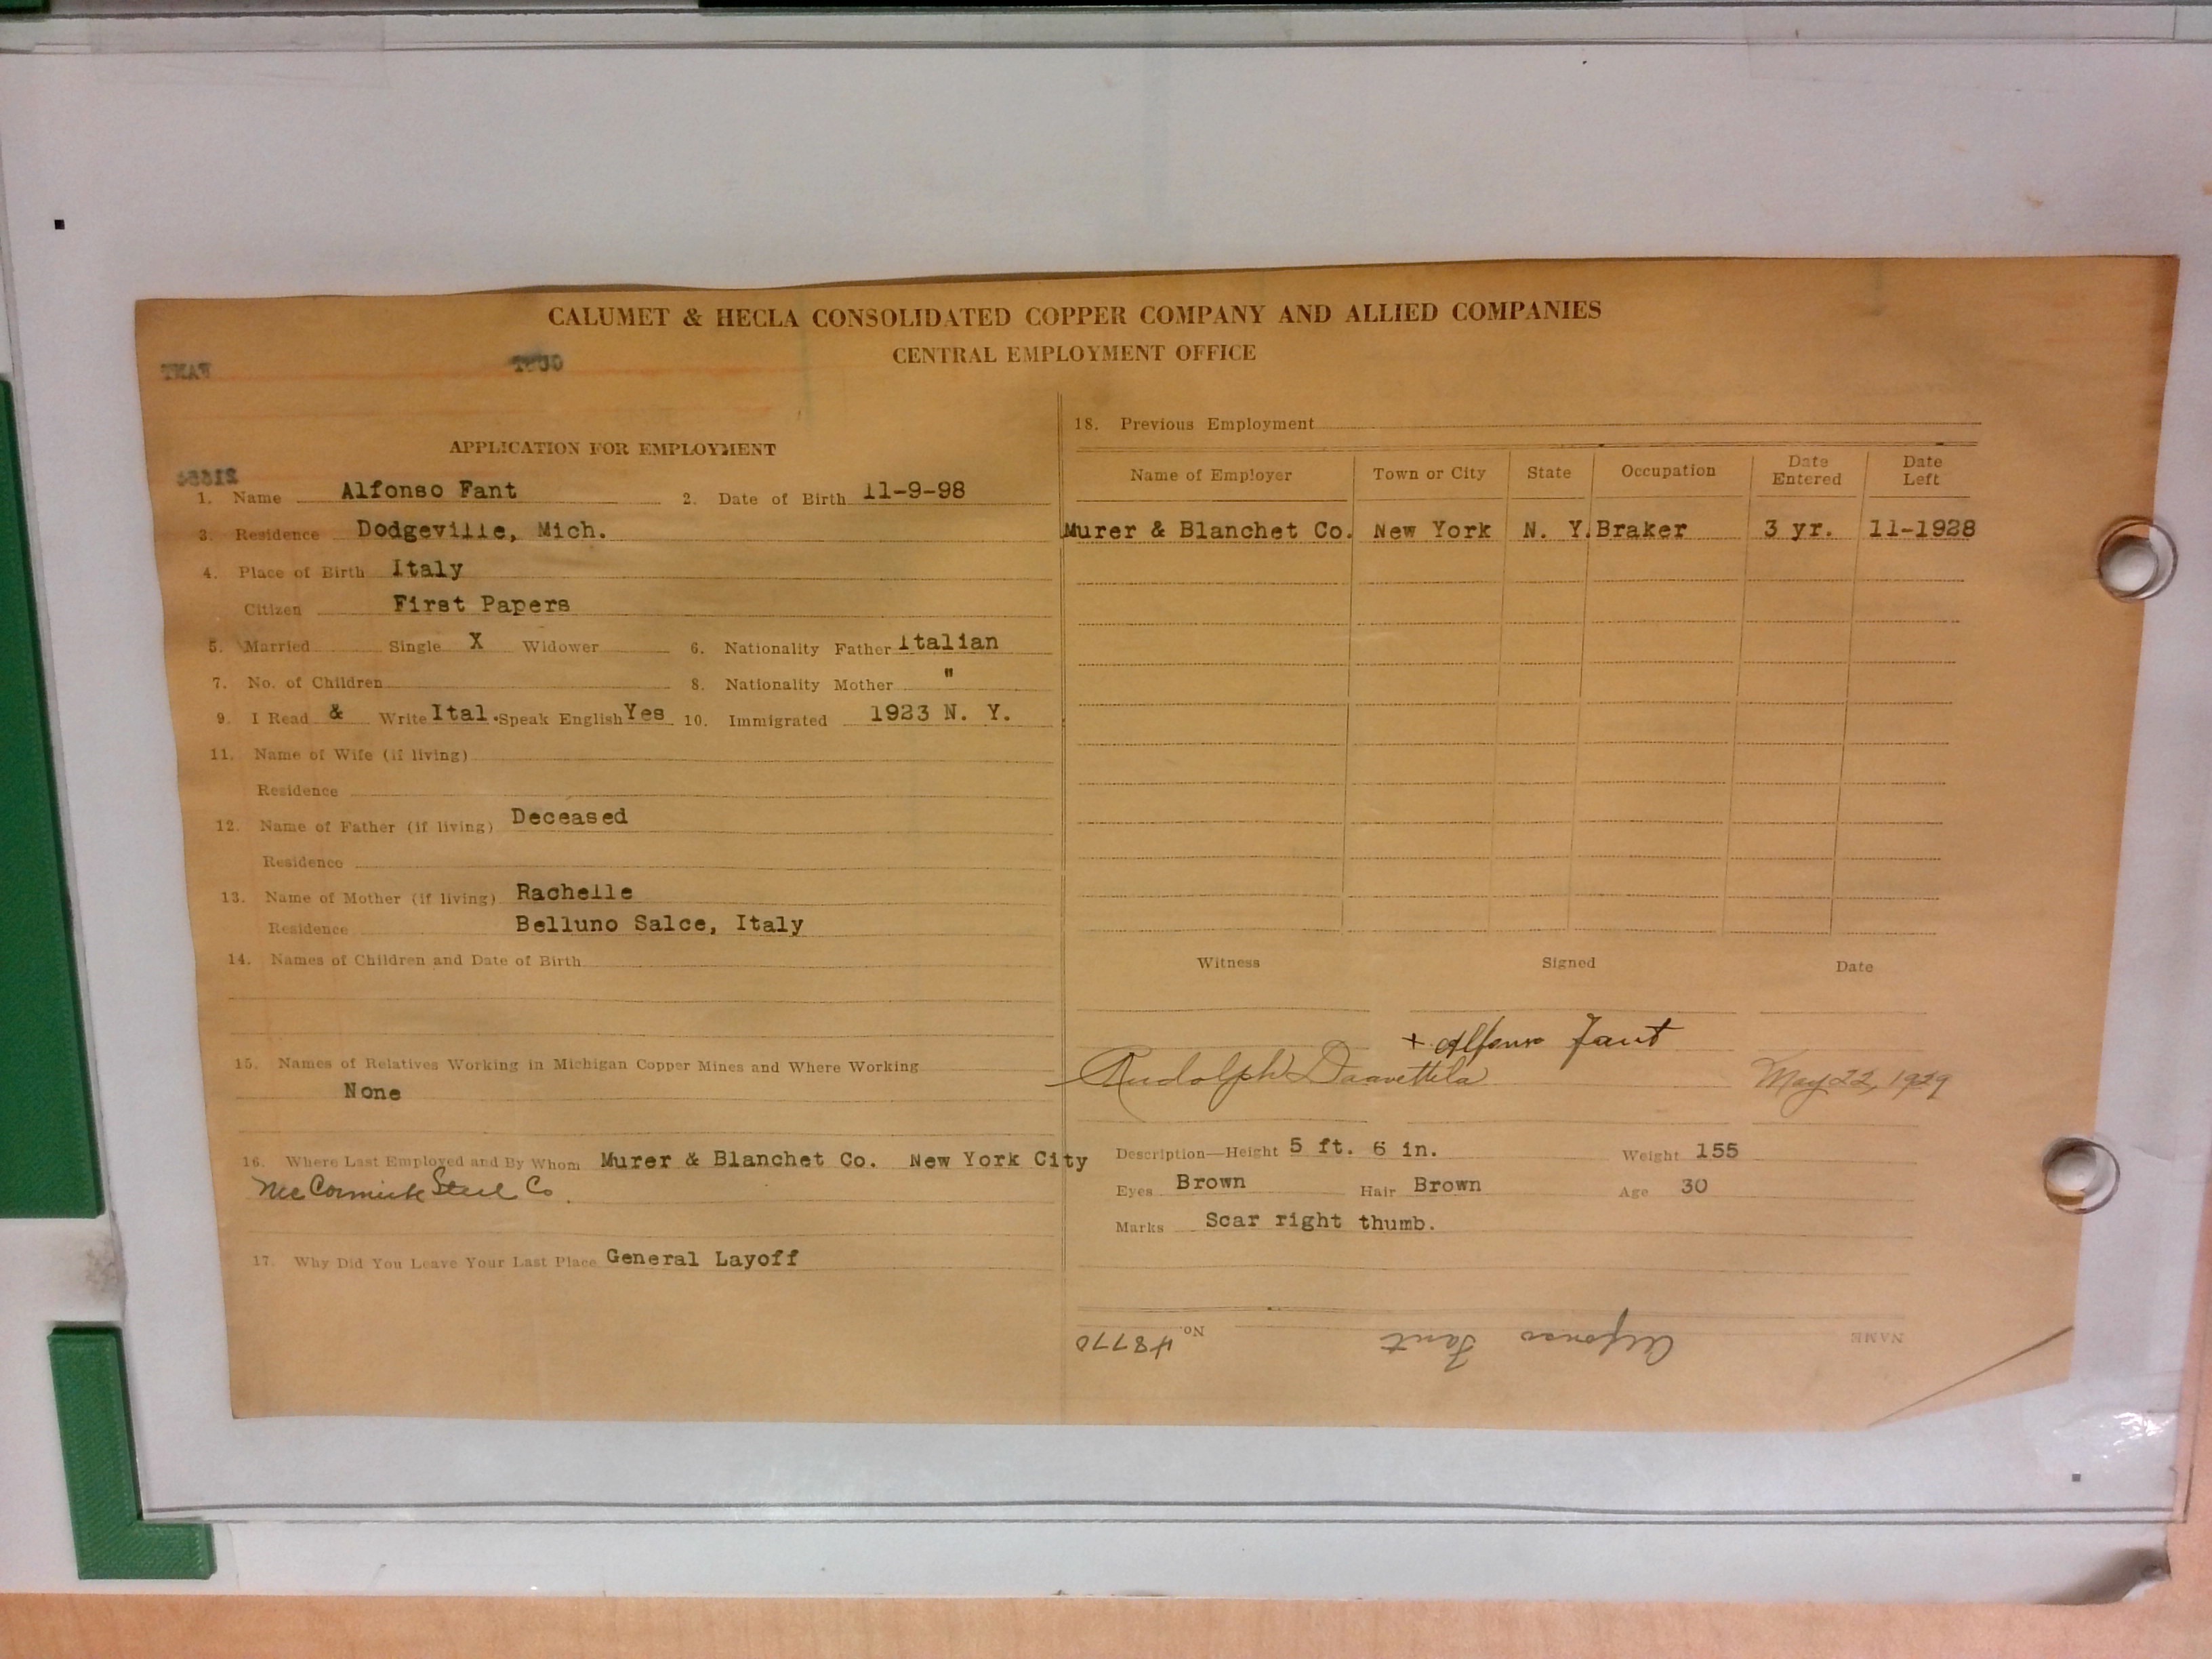 CALUMET & HECLA CONSOLIDATED COPPER COMPANY AND ALLIED COMPANIES
CENTRAL EMPLOYMENT OFFICE
APPLICATION FOR EMPLOYMENT
1. Name Alfonso Fant 2. Date of Birth 11-9-98
3. Residence Dodgeville, Mich.
4. Place of Birth Italy
Citizen First Papers
5. Married Single X Widower 6. Nationality Father Italian
7. No. of Children 8. Nationality Mother "
9. I Read & Write Ital. Speak English Yes 10. Immigrated 1923 N. Y.
11. Name of Wife (if living)
Residence
12. Name of Father (if living) Deceased
Residence
13. Name of Mother (if living) Rachelle
Residence Belluno Salce, Italy
14. Names of Children and Date of Birth
15. Names of Relatives Working in Michigan Copper Mines and Where Working
None
16. Where Last Employed and By Whom Murer & Blanchet Co. New York City
McCormick Steel Co.
17. Why Did You Leave Your Last Place General Layoff
18. Previous Employment
Name of Employer Town or City State Occupation Date Entered Date Left
Murer & Blanchet Co. New York N. Y. Braker 3 yr. 11-1928
Witness Signed Date
+ Alfonso Fant
Rudolph Daavettila May 22, 1929
Description—Height 5 ft. 6 in. Weight 155
Eyes Brown Hair Brown Age 30
Marks Scar right thumb.
NAME Alfonso Fant No. 48770